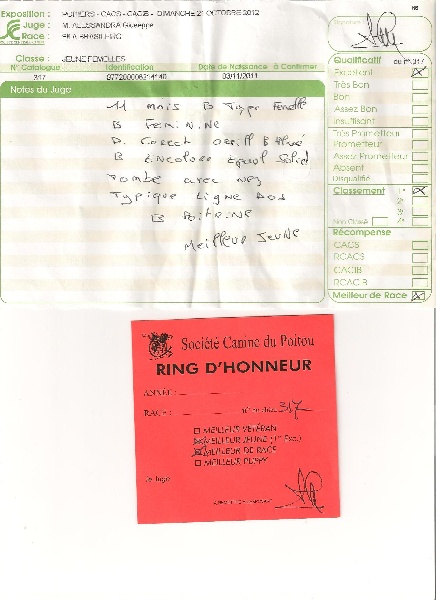 Exposition : POITIERS - CACS - CACIB - DIMANCHE 21 OCTOBRE 2012
Juge : M. ALESSANDRA Giuseppe
Race : FILA BRASILEIRO
Classe : JEUNE FEMELLES
N° Catalogue Identification Date de Naissance à Confirmer
317 03/11/2011
Notes du Juge
11 mois B Type Femelle
B Feminine
D. Correct
B Encolure Epaul Solid
Tombe avec nez
Typique Ligne Dos
B Poitrine
Meilleur Jeune
Signature :
Qualificatif du n° 317
Excellent
Très Bon
Bon
Assez Bon
Insuffisant
Très Prometteur
Prometteur
Assez Prometteur
Absent
Disqualifié
Classement 1°
2°
3°
Non Classé 4°
Récompense
CACS
RCACS
CACIB
RCACIB
Meilleur de Race
Société Canine du Poitou
RING D'HONNEUR
ANNÉE :
RACE : 317
MEILLEUR VETÉRAN
MEILLEUR JEUNE
MEILLEUR DE RACE
MEILLEUR PUPPY
Le Juge